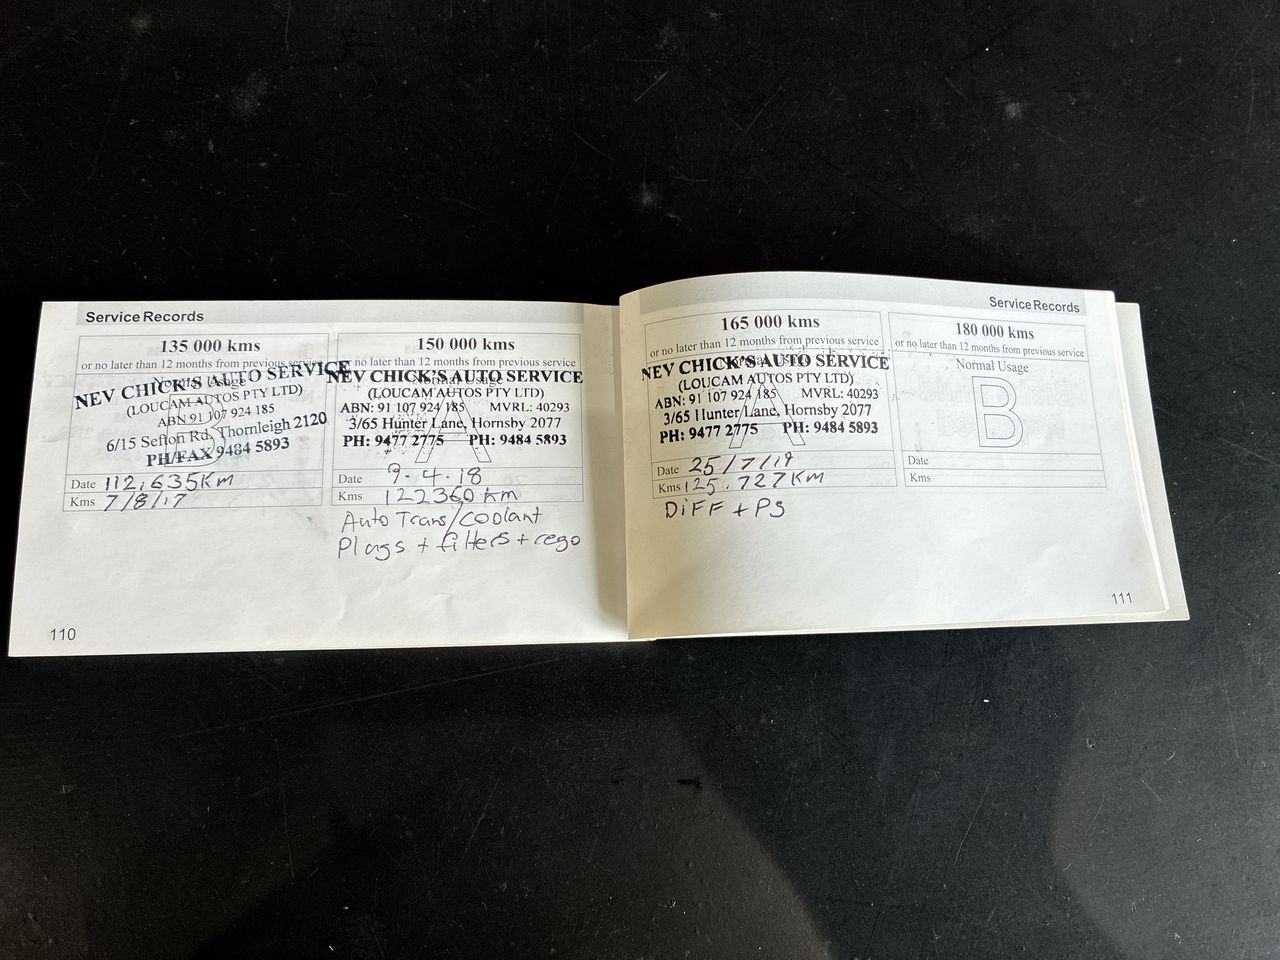 Service Records
135 000 kms
or no later than 12 months from previous service
Normal Usage
NEV CHICK'S AUTO SERVICE
(LOUCAM AUTOS PTY LTD)
ABN 91 107 924 185
6/15 Sefton Rd, Thornleigh 2120
PH/FAX 9484 5893
Date 112,635KM
Kms 7/8/17
110
150 000 kms
or no later than 12 months from previous service
Normal Usage
NEV CHICK'S AUTO SERVICE
(LOUCAM AUTOS PTY LTD)
ABN: 91 107 924 185 MVRL: 40293
3/65 Hunter Lane, Hornsby 2077
PH: 9477 2775 PH: 9484 5893
A
Date 9.4.18
Kms 122360 km
Auto Trans/Coolant
Plugs + filters + rego
Service Records
165 000 kms
or no later than 12 months from previous service
Normal Usage
NEV CHICK'S AUTO SERVICE
(LOUCAM AUTOS PTY LTD)
ABN: 91 107 924 185 MVRL: 40293
3/65 Hunter Lane, Hornsby 2077
PH: 9477 2775 PH: 9484 5893
A
Date 25/7/19
Kms 125.727KM
DiFF + PS
180 000 kms
or no later than 12 months from previous service
Normal Usage
B
Date
Kms
111